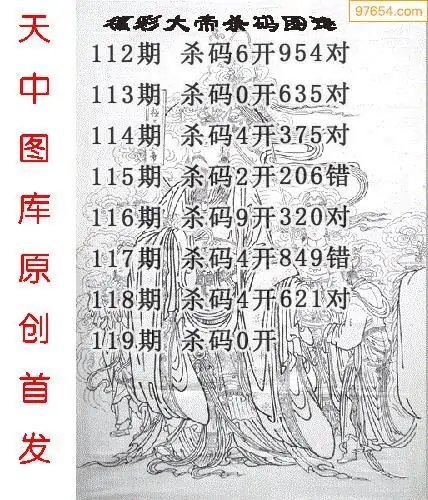 97654.com
福彩大帝杀码图谜
天中图库原创首发
112期 杀码6开954对
113期 杀码0开635对
114期 杀码4开375对
115期 杀码2开206错
116期 杀码9开320对
117期 杀码4开849错
118期 杀码4开621对
119期 杀码0开